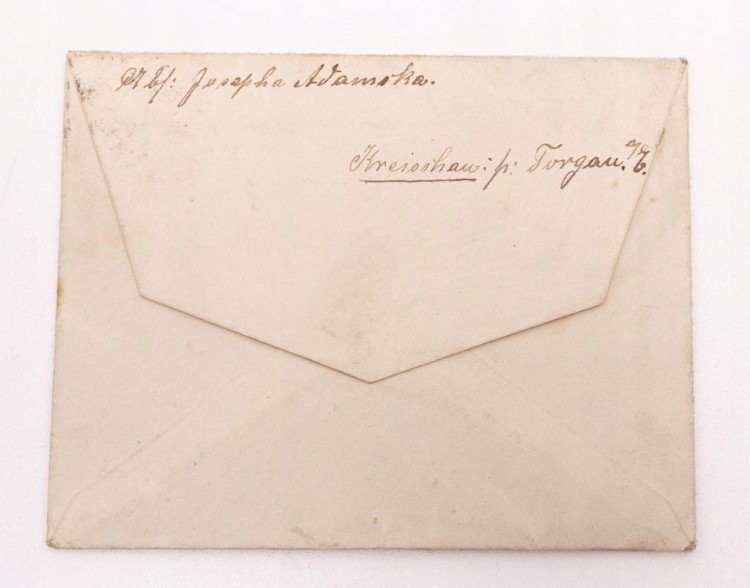 Abs: Josepha Adamska.
Kreisshaw: p: Torgau. a/E.